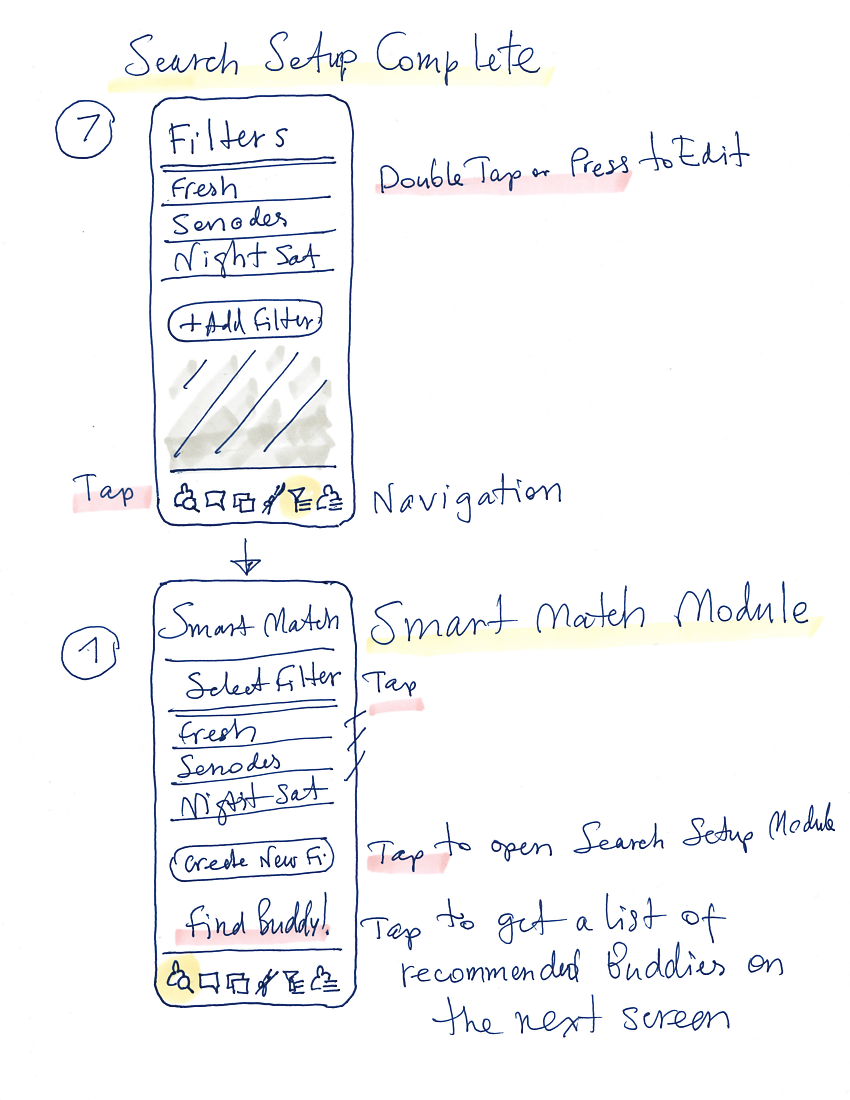 Search Setup Complete
7
Filters
Fresh
Senodes
Night Sat
+ Add Filter
Double Tap or Press to Edit
Tap
Navigation
1
Smart Match
Smart Match Module
Select Filter
Tap
Fresh
Senodes
Night Sat
Create New Fi.
Tap to open Search Setup Module
Find Buddy!
Tap to get a list of
recommended Buddies on
the next screen